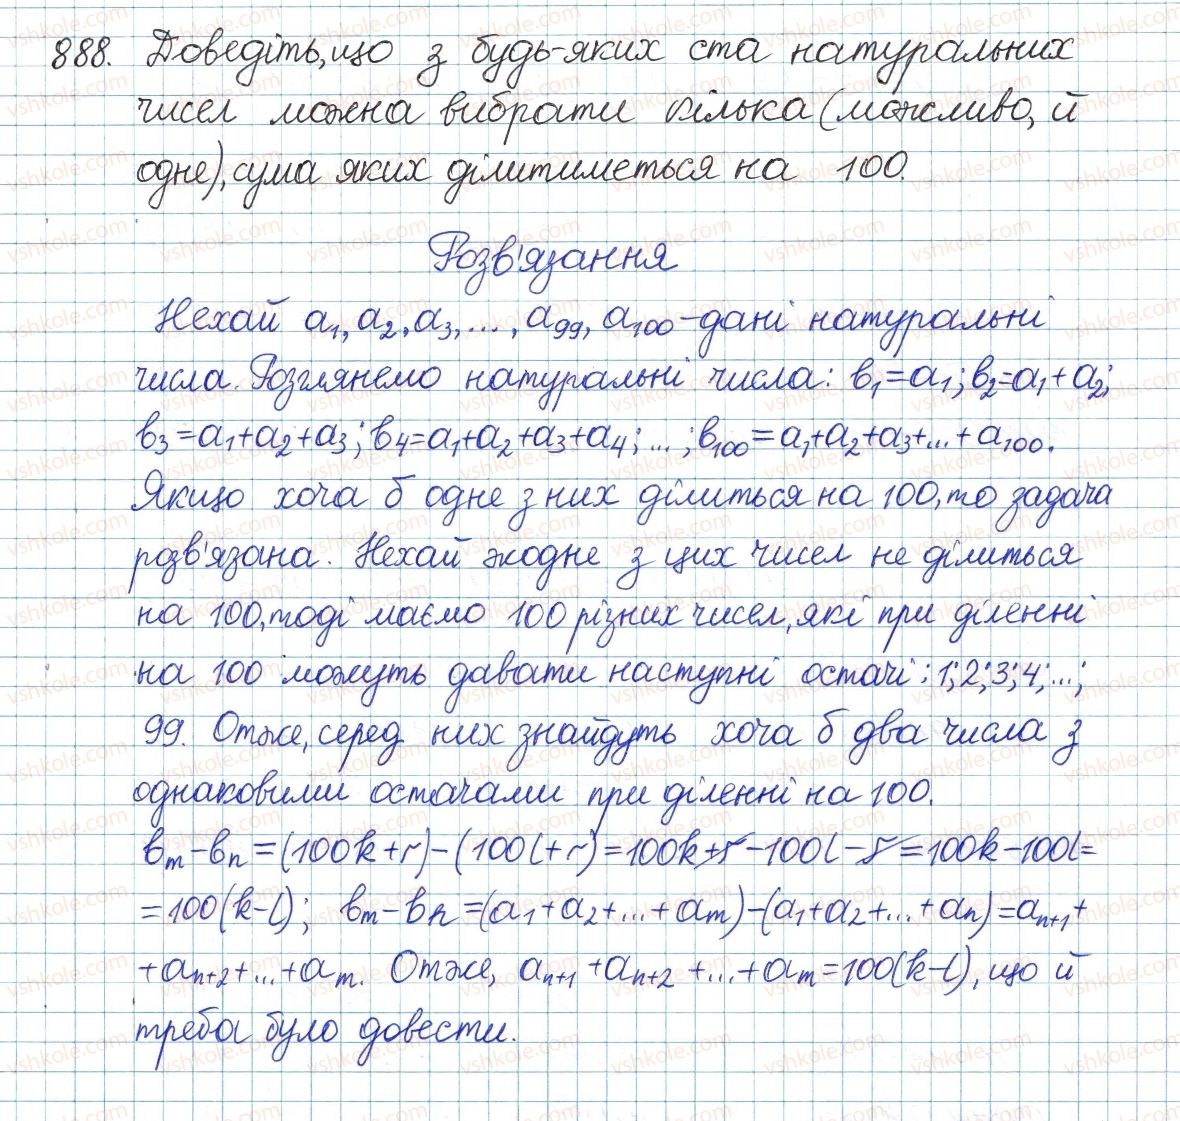 888. Доведіть, що з будь-яких ста натуральних
чисел можна вибрати кілька (можливо, й
одне), сума яких ділитиметься на 100.
Розв'язання
Нехай a₁, a₂, a₃, ..., a₉₉, a₁₀₀ - дані натуральні
числа. Розглянемо натуральні числа: b₁=a₁; b₂=a₁+a₂;
b₃=a₁+a₂+a₃; b₄=a₁+a₂+a₃+a₄; ...; b₁₀₀=a₁+a₂+a₃+...+a₁₀₀.
Якщо хоча б одне з них ділиться на 100, то задача
розв'язана. Нехай жодне з цих чисел не ділиться
на 100, тоді маємо 100 різних чисел, які при діленні
на 100 можуть давати наступні остачі: 1; 2; 3; 4; ...;
99. Отже, серед них знайдуть хоча б два числа з
однаковими остачами при діленні на 100.
bₘ-bₙ=(100k+r)-(100l+r)=100k+r-100l-r=100k-100l=
=100(k-l); bₘ-bₙ=(a₁+a₂+...+aₘ)-(a₁+a₂+...+aₙ)=aₙ₊₁+
+aₙ₊₂+...+aₘ. Отже, aₙ₊₁+aₙ₊₂+...+aₘ=100(k-l), що й
треба було довести.
vshkole.com